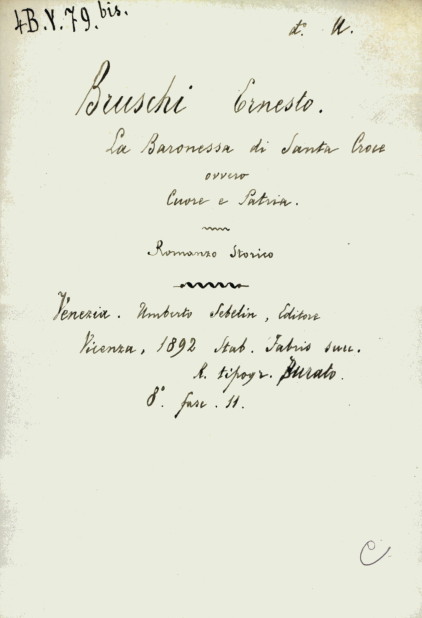 4B.V.79.bis.
d° U.
Bruschi Ernesto.
La Baronessa di Santa Croce
ovvero
Cuore e Patria.
Romanzo Storico
Venezia. Umberto Sebelin, Editore
Vicenza, 1892 Stab. Fabris succ.
R. tipogr. Burato.
8°. fasc. 11.
C